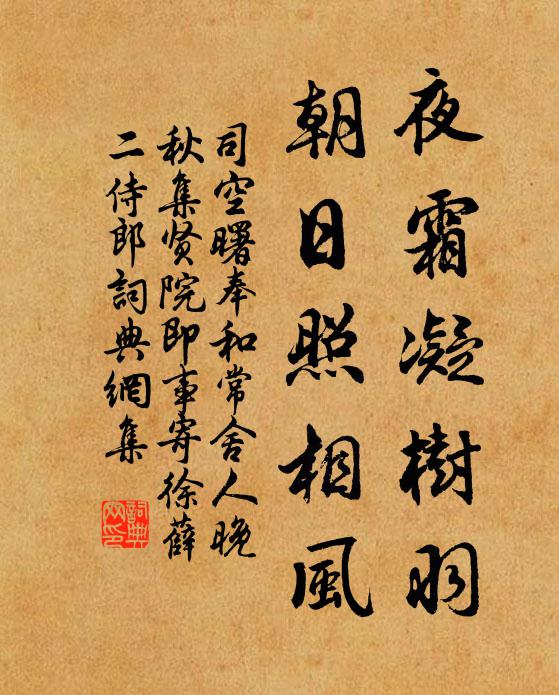 夜霜凝樹羽
朝日照相風
司空曙奉和常舍人晚
秋集贤院即事寄徐薛
二侍郎詞典網集
詞典网印